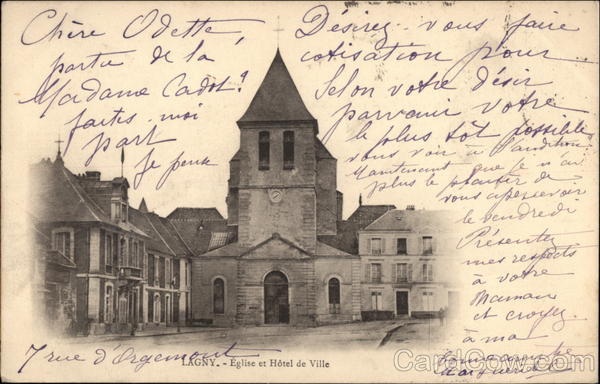 Chère Odette,
Désirez-vous faire
partie de la
cotisation pour
Madame Cadot?
Selon votre désir
faites-moi
parvenir votre
part
le plus tôt possible
Je pense
vous voir à l'audition
Maintenant que je n'ai
plus le plaisir de
vous apercevoir
le vendredi
Présentez
mes respects
à votre
Maman
et croyez
à ma
7 rue d'Orgemont
LAGNY. - Église et Hôtel de Ville
Marguerite
CardCow.com